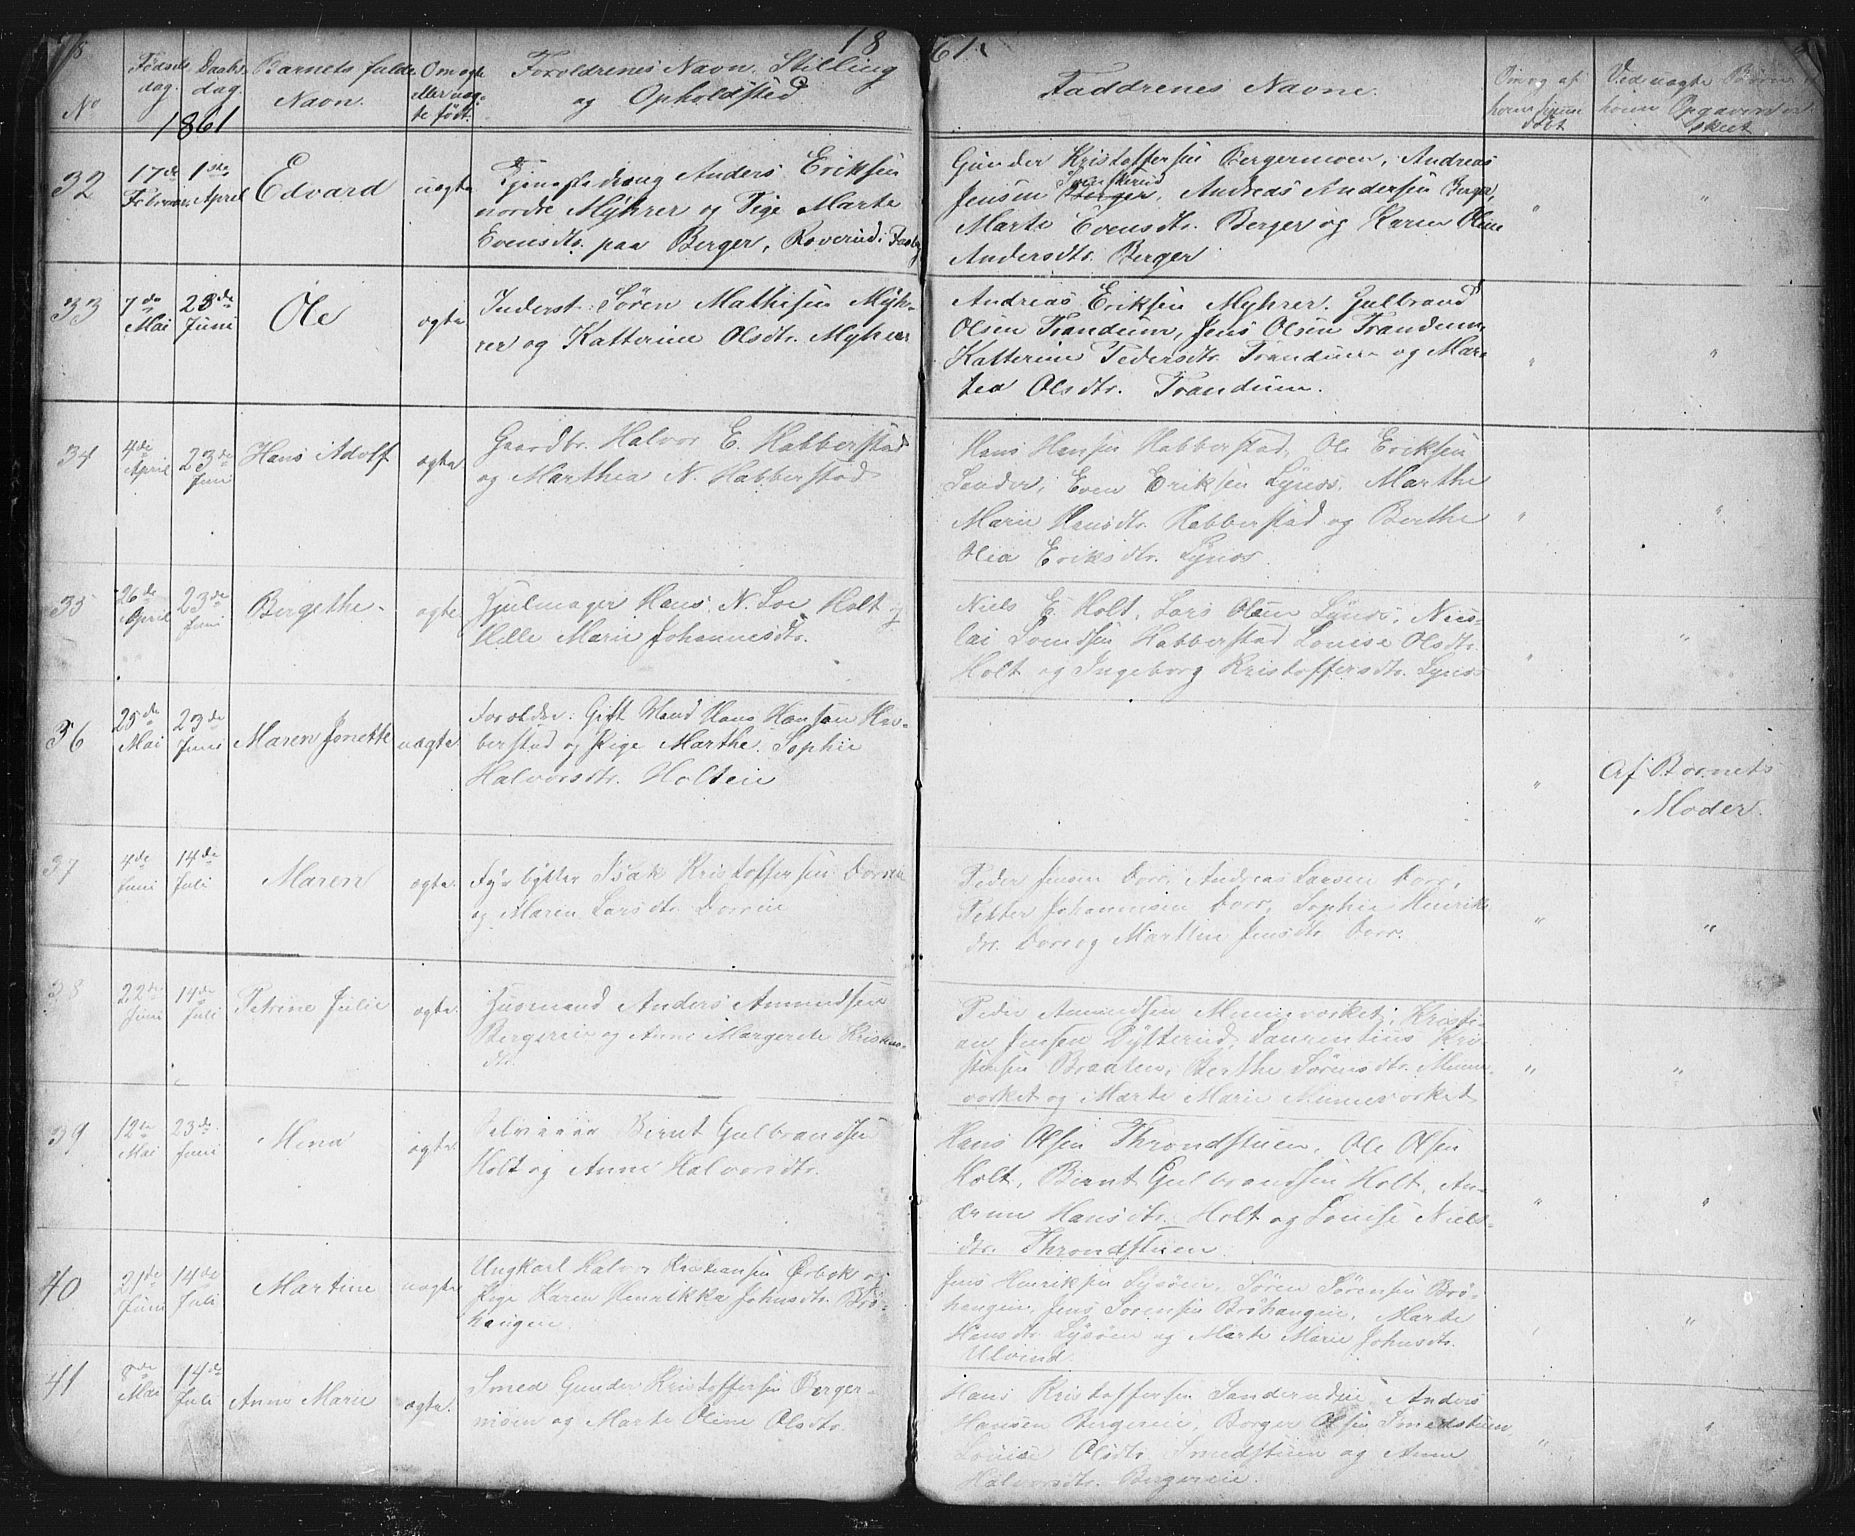 18 61.
No
Fødsels dag.
Daabs dag.
Barnets fulde Navn.
Om ægte eller uæg- te født.
Forældrenes Navn, Stilling og Opholdsted
Faddrenes Navne.
Ved uægte Børn
1861
32 17de Februar 1ste April Edvard uægte
Tjenestedreng Anders Eriksen
nordre Myhrer og Pige Marte
Evensdtr. paa Berger, Roverud i
Gunder Kristoffersen Bergermoen, Andreas
Jensen Berger, Andreas Andersen Berger,
Marte Evensdtr. Berger og Karen Oline
Andersdtr. Berger
"
"
33 7de Mai 23de Juni Ole ægte
Inderst: Søren Mathisen Myh-
rer og Katterine Olsdtr. Myhrer
Andreas Eriksen Myhrer. Gulbrand
Olsen Trandum, Jens Olsen Trandum,
Katterine Pedersdtr. Trandum og Mar-
tea Olsdtr. Trandum.
"
"
34 4de April 23de Juni Hans Adolf ægte
Gaardbr. Halvor E. Habberstad
og Marthea N. Habberstad
Hans Hansen Habberstad, Ole Eriksen
Sander, Even Eriksen Lynæs, Marthe
Marie Hansdtr. Habberstad og Berthe
Olea Eriksdtr. Lynæs.
"
"
35 26de April 23de Juni Bergethe. ægte
Hjulmager Hans N. Loe Holt og
Helle Marie Johannesdtr.
Niels E. Holt, Lars Olsen Lynæs, Nico-
lai Svendsen Habberstad Louise Olsdtr.
Holt og Ingeborg Kristoffersdtr. Lynæs
"
"
36 25de Mai 23de Juni Maren Jonette uægte
Foreldre: Gift Mand Hans Hansen Ha-
berstad og Pige Marthe Sophie
Halvorsdtr. Holteie
"
Af Barnets
Moder.
37 4de Juni 14de Juli Maren ægte.
Fyrbøtter Isak Kristoffersen Dorreie
og Maren Larsdtr. Dorreie
Peder Jensen Dorr, Andreas Larsen Dorr,
Petter Johannesen Dorr, Sophie Henriks-
dtr. Dorr og Marthe Jensdtr. Dorr.
"
"
38 22de Juni 14de Juli Petrine Julie ægte.
Husmand Anders Amundsen
Bergereie og Anne Margrete Kristens-
dtr.
Peder Amundsen Minnesorket, Kristi-
an Jensen Dytterud, Laurentius Kri-
stensen Braaten, Berthe Sørensdtr. Minne-
vorket og Marte Marie Minnesvorket
"
"
39 12te Mai 23de Juni Mina ægte.
Bernt Gulbrandsen
Holt og Anne Halvorsdtr.
Hans Olsen Throndstuen, Ole Olsen
Holt, Bernt Gulbrandsen Holt, An-
drine Hansdtr. Holt og Louise Niels-
dtr. Throndstuen
"
"
40 21de Juni 14de Juli Martine uægte
Ungkarl Halvor Kristiansen Ørbek og
Pige Karen Henrikka Johnsdtr. Brø-
haugen.
Jens Henriksen Lysøen, Søren Sørensen Brø-
haugen, Jens Sørensen Brøhaugen, Marte
Hansdtr. Lysøen og Marte Marie Johnsdtr.
Ulvind
"
"
41 8de Mai 14de Juli Anne Marie ægte.
Smed Gunder Kristoffersen Berger-
moen og Marte Oline Olsdtr.
Hans Kristoffersen Sanderudeie, Anders
Hansen Bergereie, Borger Olsen Smedstuen
Louise Olsdtr. Smedstuen og Anne
Halvorsdtr. Bergereie.
"
"